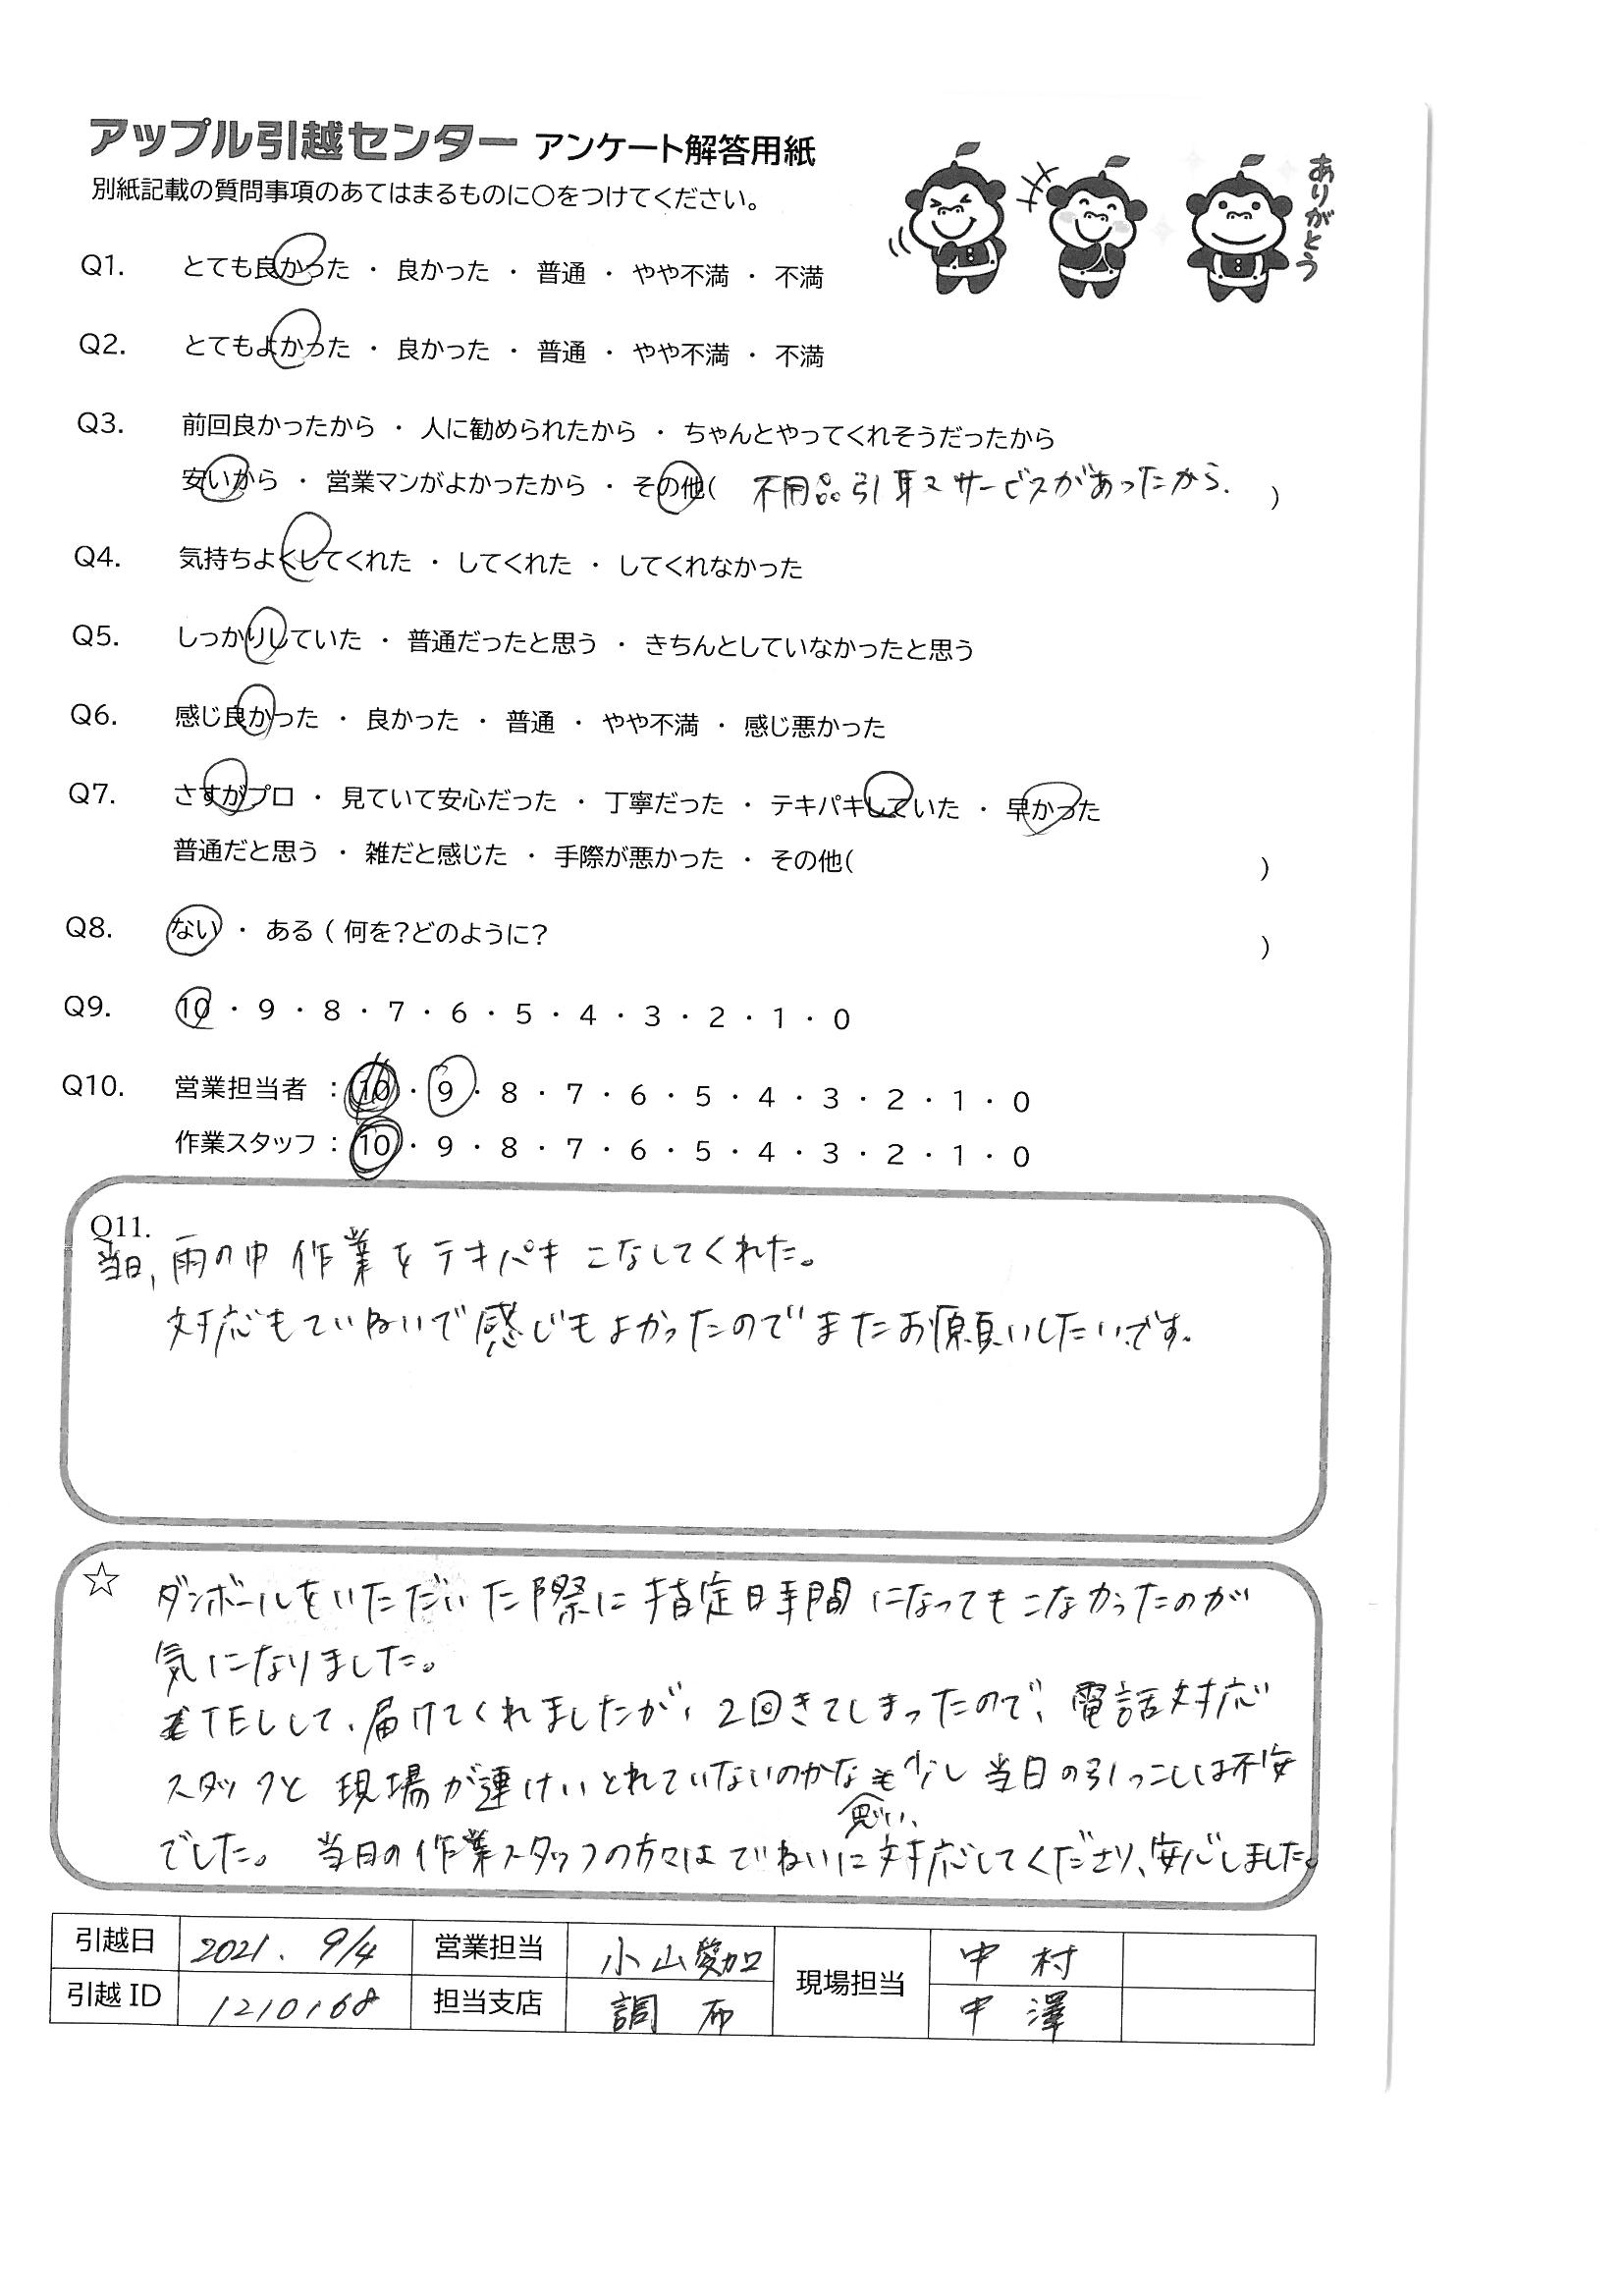 アップル引越センター アンケート解答用紙
別紙記載の質問事項のあてはまるものに○をつけてください。
ありがとう
Q1. とても良かった ・ 良かった ・ 普通 ・ やや不満 ・ 不満
Q2. とてもよかった ・ 良かった ・ 普通 ・ やや不満 ・ 不満
Q3. 前回良かったから ・ 人に勧められたから ・ ちゃんとやってくれそうだったから
安いから ・ 営業マンがよかったから ・ その他( 不用品引取サービスがあったから. )
Q4. 気持ちよくしてくれた ・ してくれた ・ してくれなかった
Q5. しっかりしていた ・ 普通だったと思う ・ きちんとしていなかったと思う
Q6. 感じ良かった ・ 良かった ・ 普通 ・ やや不満 ・ 感じ悪かった
Q7. さすがプロ ・ 見ていて安心だった ・ 丁寧だった ・ テキパキしていた ・ 早かった
普通だと思う ・ 雑だと感じた ・ 手際が悪かった ・ その他( )
Q8. ない ・ ある ( 何を?どのように? )
Q9. 10 ・ 9 ・ 8 ・ 7 ・ 6 ・ 5 ・ 4 ・ 3 ・ 2 ・ 1 ・ 0
Q10. 営業担当者 : 10 ・ 9 ・ 8 ・ 7 ・ 6 ・ 5 ・ 4 ・ 3 ・ 2 ・ 1 ・ 0
作業スタッフ : 10 ・ 9 ・ 8 ・ 7 ・ 6 ・ 5 ・ 4 ・ 3 ・ 2 ・ 1 ・ 0
Q11.
当日、雨の中 作業をテキパキこなしてくれた。
対応もていねいで感じもよかったのでまたお願いしたいです。
☆ ダンボールをいただいた際に指定日時間になってもこなかったのが
気になりました。
TELして、届けてくれましたが、2回きてしまったので、電話対応
スタッフと現場が連けいとれていないのかなと思い、少し当日の引っこしは不安
でした。当日の作業スタッフの方々はていねいに対応してくださり、安心しました。
引越日 2021. 9/4 営業担当 小山愛加 現場担当 中村
引越ID 1210168 担当支店 調布 中澤